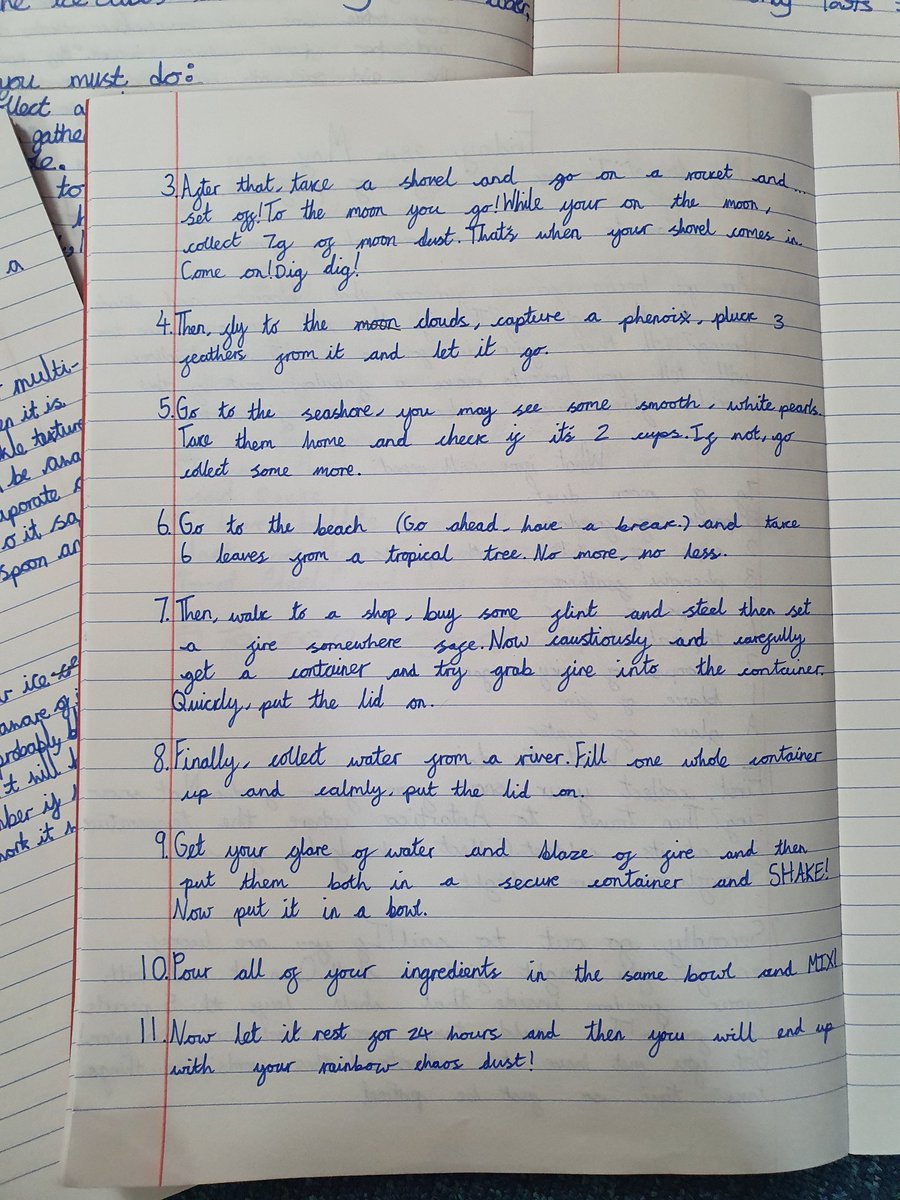 you must do:
to
a
multi-
it is
spoon
3. After that, take a shovel and go on a rocket and...
set off! To the moon you go! While your on the moon,
collect 7g of moon dust. That's when your shovel comes in.
Come on! Dig dig!
4. Then, fly to the moon clouds, capture a phenoix, pluck 3
feathers from it and let it go.
5. Go to the seashore, you may see some smooth, white pearls.
Take them home and check if it's 2 cups. If not, go
collect some more.
6. Go to the beach (Go ahead - have a break.) and take
6 leaves from a tropical tree. No more, no less.
7. Then, walk to a shop, buy some flint and steel then set
a fire somewhere safe. Now caustiously and carefully
get a container and try grab fire into the container.
Quickly, put the lid on.
8. Finally, collect water from a river. Fill one whole container
up and calmly, put the lid on.
9. Get your glare of water and blaze of fire and then
put them both in a secure container and SHAKE!
Now put it in a bowl.
10. Pour all of your ingredients in the same bowl and MIX!
11. Now let it rest for 24 hours and then you will end up
with your rainbow chaos dust!